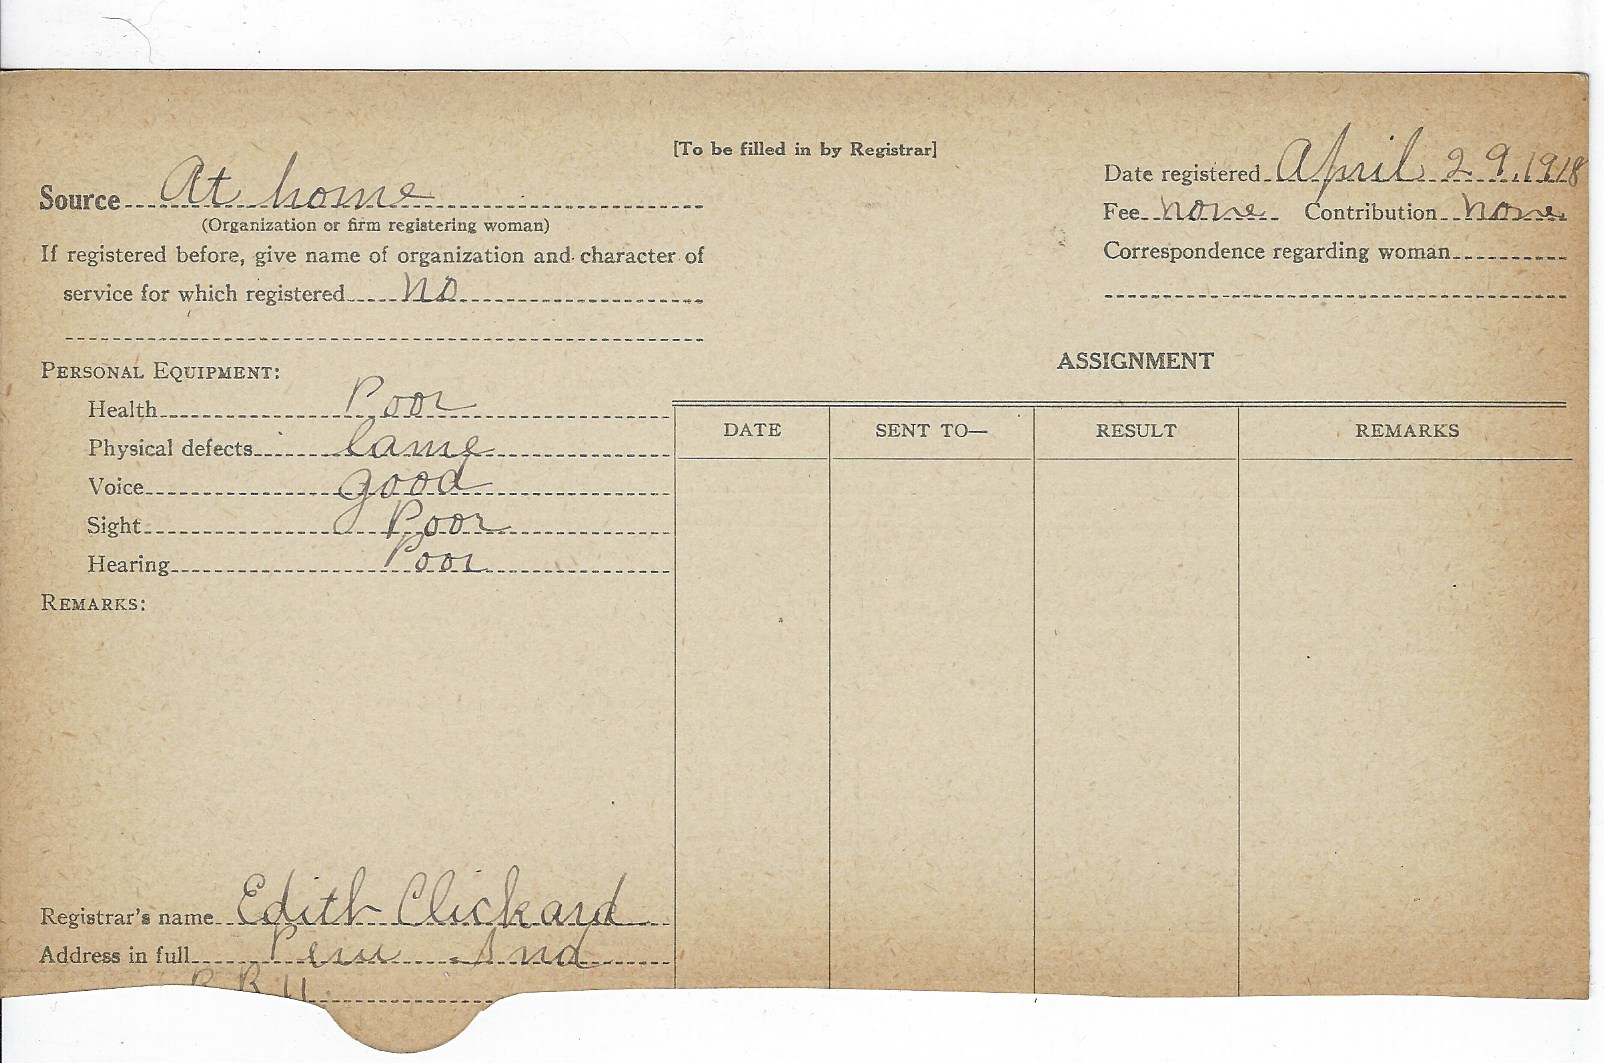 [To be filled in by Registrar]
Source At home
(Organization or firm registering woman)
If registered before, give name of organization and character of
service for which registered no
Date registered April 29, 1918
Fee none Contribution none
Correspondence regarding woman
PERSONAL EQUIPMENT:
Health Poor
Physical defects lame
Voice good
Sight Poor
Hearing Poor
REMARKS:
ASSIGNMENT
DATE SENT TO— RESULT REMARKS
Registrar's name Edith Clickard
Address in full Peru Ind